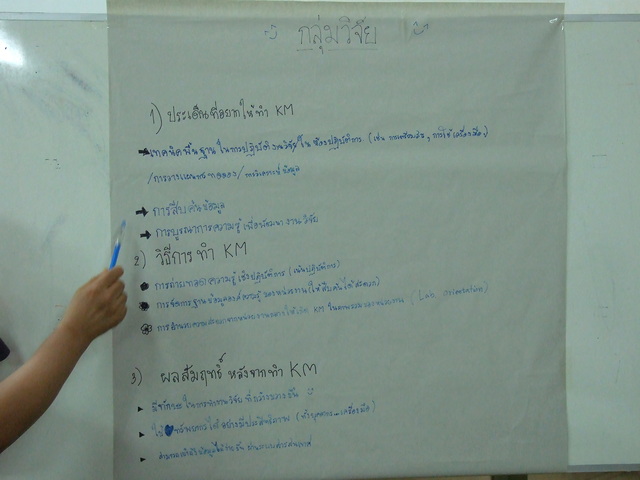 กลุ่มวิจัย
1) ประเด็นที่อยากให้ทำ KM
เทคนิคพื้นฐานในการปฏิบัติงานวิจัยในห้องปฏิบัติการ (เช่น การใช้เครื่องมือ)
/การวางแผนการทดลอง/การวิเคราะห์ข้อมูล
การสืบค้นข้อมูล
การบูรณาการความรู้เพื่อพัฒนางานวิจัย
2) วิธีการทำ KM
การถ่ายทอดความรู้เชิงปฏิบัติการ (เน้นปฏิบัติการ)
การจัดการฐานข้อมูลองค์ความรู้ของหน่วยงาน (ให้สืบค้นได้สะดวก)
KM (Lab orientation)
3) ผลสัมฤทธิ์ หลังจากทำ KM
มีทักษะในการทำงานวิจัย
ใช้ทรัพยากรได้อย่างมีประสิทธิภาพ (ทั้งบุคลากร เครื่องมือ)